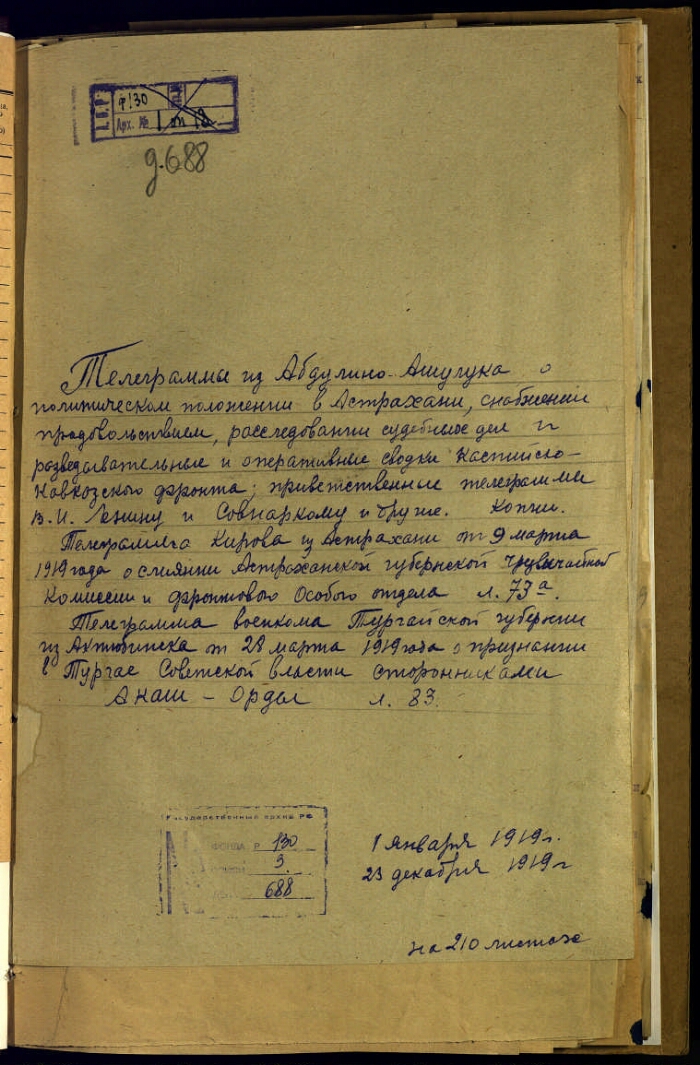 Ф130
Арх. №
д.688
Телеграммы из Абдулино-Ашугука о
политическом положении в Астрахани, снабжении
продовольствием, расследовании судебных дел и
разведывательные и оперативные сводки Каспийско-
Кавказского фронта; приветственные телеграммы
В.И. Ленину и Совнаркому и другие. Копии.
Телеграмма Кирова из Астрахани от 9 марта
1919 года о слиянии Астраханской губернской Чрезвычайной
Комиссии и фронтового Особого отдела л. 73а.
Телеграмма военкома Тургайской губернии
из Актюбинска от 28 марта 1919 года о признании
в Тургае Советской власти сторонниками
Алаш - Орды л. 83.
Государственный архив РФ
ФОНД Р 130
ОПИСИ 3
688
1 января 1919 г.
23 декабря 1919 г
на 210 листах